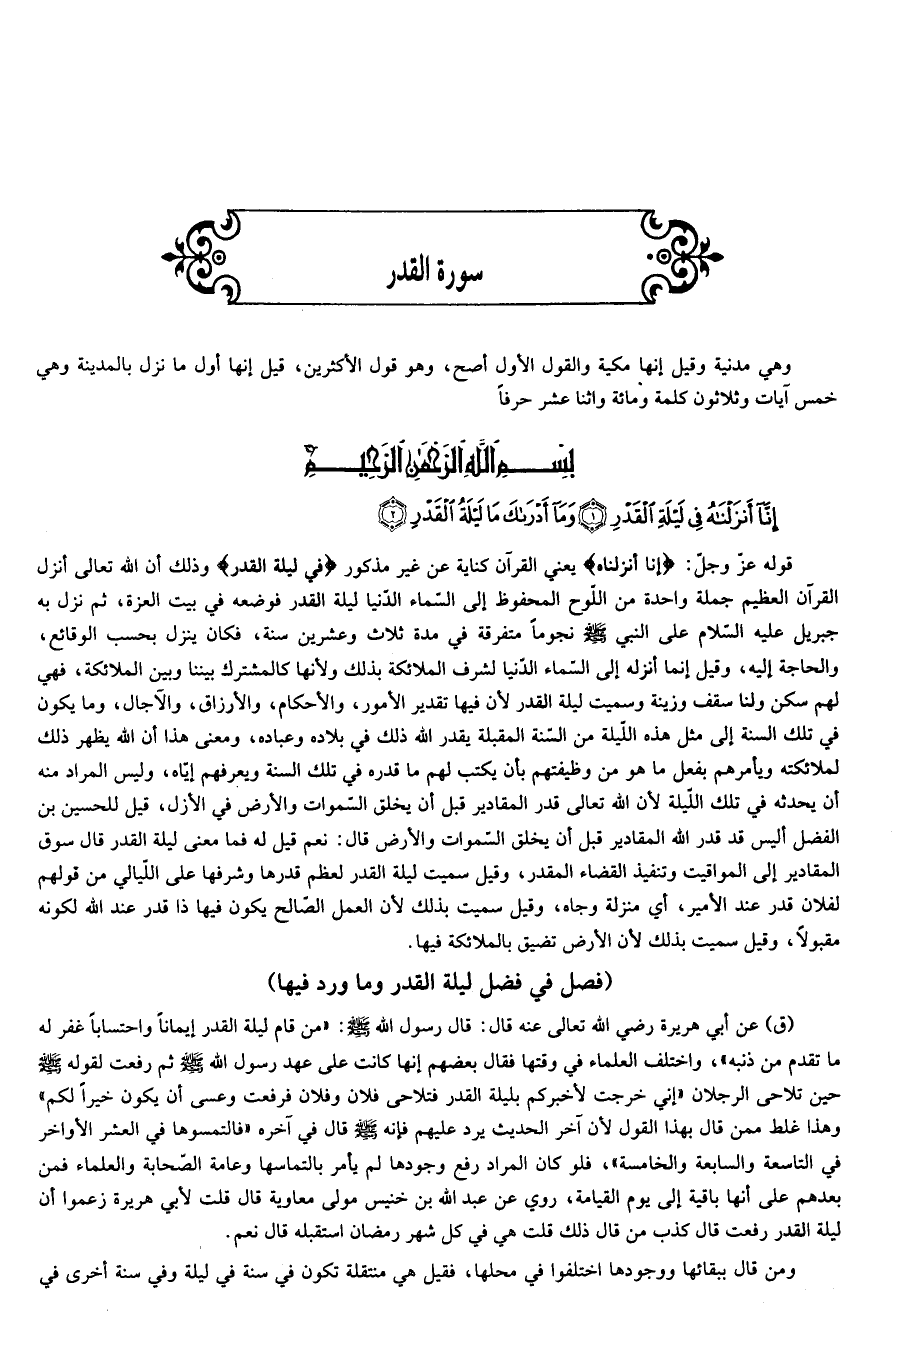 سورة القدر
وهي مدنية وقيل إنها مكية والقول الأول أصح، وهو قول الأكثرين، قيل إنها أول ما نزل بالمدينة وهي
خمس آيات وثلاثون كلمة ومائة واثنا عشر حرفاً
بِسْمِ اللَّهِ الرَّحْمَنِ الرَّحِيمِ
إِنَّا أَنزَلْنَاهُ فِي لَيْلَةِ الْقَدْرِ ﴿١﴾ وَمَا أَدْرَاكَ مَا لَيْلَةُ الْقَدْرِ ﴿٢﴾
قوله عزّ وجلّ: ﴿إنا أنزلناه﴾ يعني القرآن كناية عن غير مذكور ﴿في ليلة القدر﴾ وذلك أن الله تعالى أنزل
القرآن العظيم جملة واحدة من اللّوح المحفوظ إلى السّماء الدّنيا ليلة القدر فوضعه في بيت العزة، ثم نزل به
جبريل عليه السّلام على النبي ﷺ نجوماً متفرقة في مدة ثلاث وعشرين سنة، فكان ينزل بحسب الوقائع،
والحاجة إليه، وقيل إنما أنزله إلى السّماء الدّنيا لشرف الملائكة بذلك ولأنها كالمشترك بيننا وبين الملائكة، فهي
لهم سكن ولنا سقف وزينة وسميت ليلة القدر لأن فيها تقدير الأمور، والأحكام، والأرزاق، والآجال، وما يكون
في تلك السنة إلى مثل هذه اللّيلة من السّنة المقبلة يقدر الله ذلك في بلاده وعباده، ومعنى هذا أن الله يظهر ذلك
لملائكته ويأمرهم بفعل ما هو من وظيفتهم بأن يكتب لهم ما قدره في تلك السنة ويعرفهم إيّاه، وليس المراد منه
أن يحدثه في تلك اللّيلة لأن الله تعالى قدر المقادير قبل أن يخلق السّموات والأرض في الأزل، قيل للحسين بن
الفضل أليس قد قدر الله المقادير قبل أن يخلق السّموات والأرض قال: نعم قيل له فما معنى ليلة القدر قال سوق
المقادير إلى المواقيت وتنفيذ القضاء المقدر، وقيل سميت ليلة القدر لعظم قدرها وشرفها على اللّيالي من قولهم
لفلان قدر عند الأمير، أي منزلة وجاه، وقيل سميت بذلك لأن العمل الصّالح يكون فيها ذا قدر عند الله لكونه
مقبولاً، وقيل سميت بذلك لأن الأرض تضيق بالملائكة فيها.
(فصل في فضل ليلة القدر وما ورد فيها)
(ق) عن أبي هريرة رضي الله تعالى عنه قال: قال رسول الله ﷺ: «من قام ليلة القدر إيماناً واحتساباً غفر له
ما تقدم من ذنبه»، واختلف العلماء في وقتها فقال بعضهم إنها كانت على عهد رسول الله ﷺ ثم رفعت لقوله ﷺ
حين تلاحى الرجلان «إني خرجت لأخبركم بليلة القدر فتلاحى فلان وفلان فرفعت وعسى أن يكون خيراً لكم»
وهذا غلط ممن قال بهذا القول لأن آخر الحديث يرد عليهم فإنه ﷺ قال في آخره «فالتمسوها في العشر الأواخر
في التاسعة والسابعة والخامسة»، فلو كان المراد رفع وجودها لم يأمر بالتماسها وعامة الصّحابة والعلماء فمن
بعدهم على أنها باقية إلى يوم القيامة، روي عن عبد الله بن خنيس مولى معاوية قال قلت لأبي هريرة زعموا أن
ليلة القدر رفعت قال كذب من قال ذلك قلت هي في كل شهر رمضان استقبله قال نعم.
ومن قال ببقائها ووجودها اختلفوا في محلها، فقيل هي منتقلة تكون في سنة في ليلة وفي سنة أخرى في